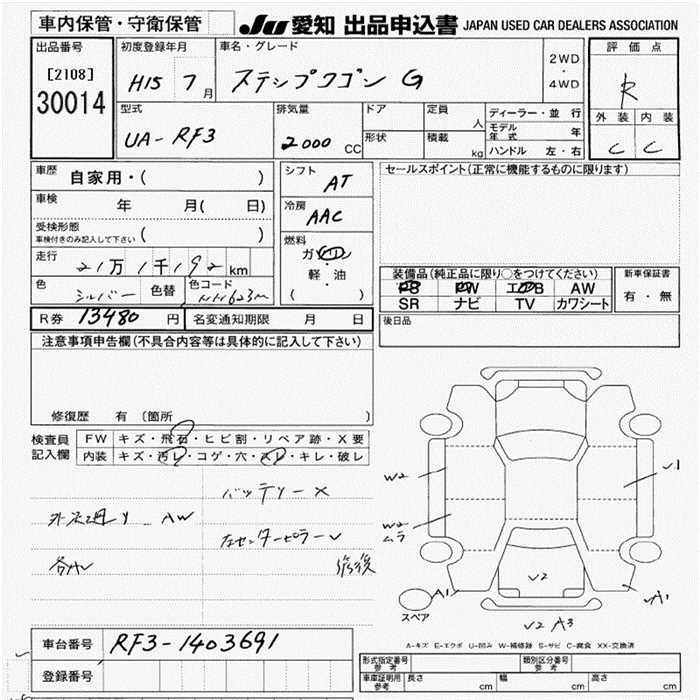 車内保管・守衛保管
JU 愛知 出品申込書 JAPAN USED CAR DEALERS ASSOCIATION
出品番号
[2108]
30014
初度登録年月
H15 7 月
車名・グレード
ステップワゴン G
2WD
・
4WD
評価点
R
外装 内装
C C
型式
UA-RF3
排気量
2000 CC
ドア
形状
定員
人
積載
kg
ディーラー・並行
モデル年式 年
ハンドル 左・右
車歴
自家用・( )
車検 年 月( 日)
受検形態
車検付きのみ記入して下さい ( )
走行 21万1千192 km
色 シルバー 色替 色コード NH623M
シフト
AT
冷房
AAC
燃料
ガソリン
・
軽・油
( )
セールスポイント(正常に機能するものに限ります)
装備品(純正品に限り○をつけてください)
PS PW エアB AW
SR ナビ TV カワシート
新車保証書
有・無
後日品
R券 13480 円 名変通知期限 月 日
注意事項申告欄(不具合内容等は具体的に記入して下さい)
修復歴 有 〔箇所
検査員
記入欄
FW キズ・飛石・ヒビ割・リペア跡・X要
内装 キズ・汚レ・コゲ・穴・スレ・キレ・破レ
バッテリーX
AW
左センターピラー
修後
W2
W2
ムラ
A1
スペア
V2
V2 A3
A1
A-キズ E-エクボ U-凹み W-補修跡 S-サビ C-腐食 XX-交換済
車台番号 RF3-1403691
登録番号
形式指定番号
参考
類別区分番号
参考
車庫証明用
参考
長さ cm 幅 cm 高さ cm